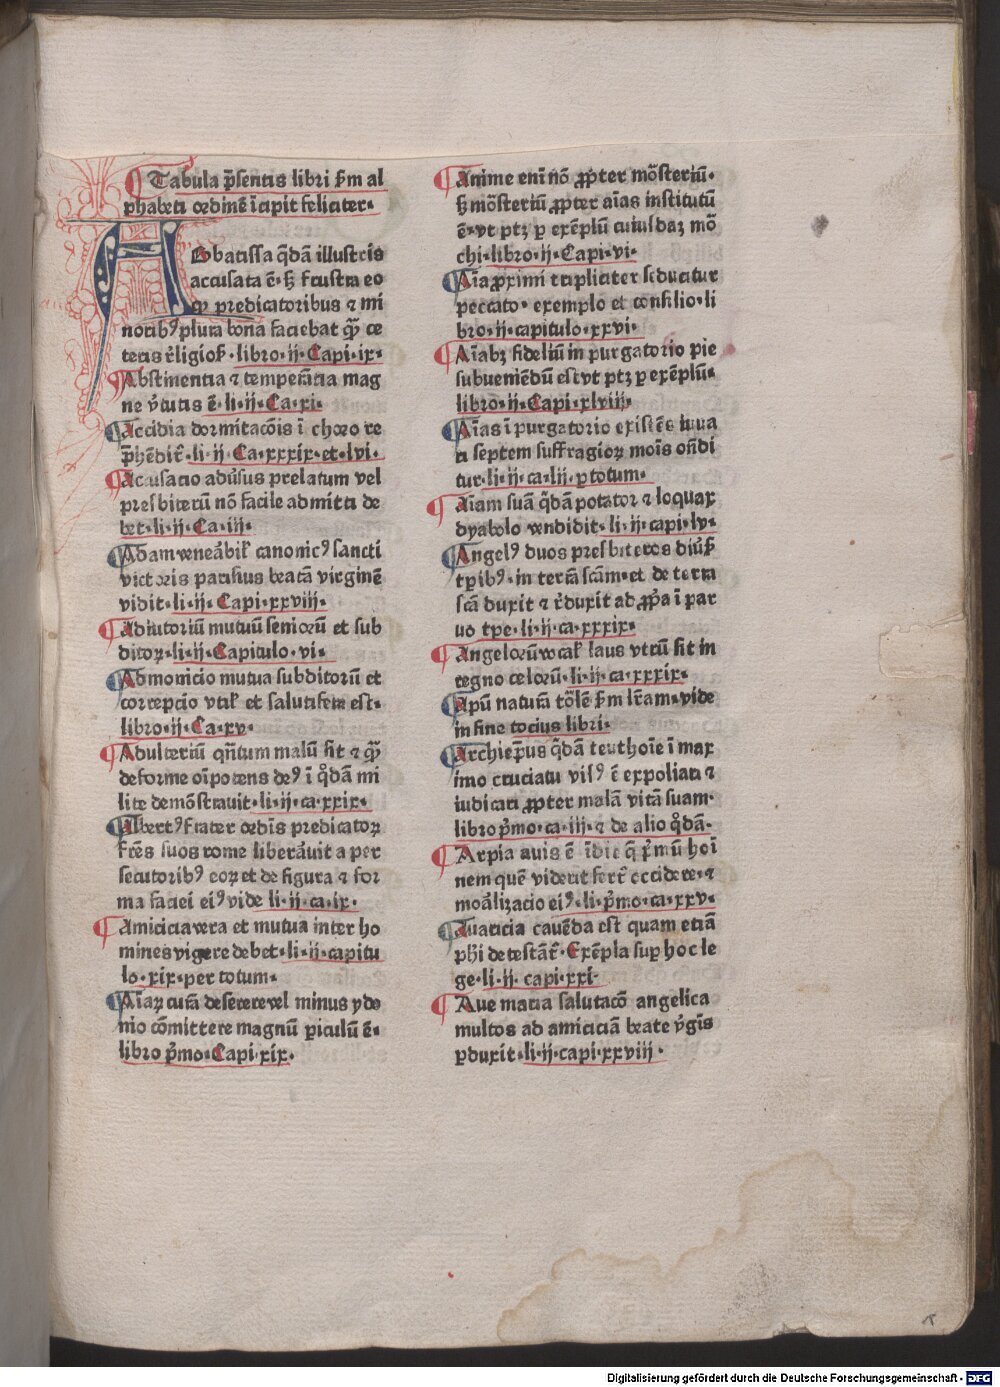 Tabula p̃sentis libri ẜm al
phabeti ordinē īcipit feliciter·
ABbatissa q̃dā illustris
accusata ē· ꜩ frustra eo
ꝙ predicatoribus ⁊ mi
noribꝰ plura bona faciebat q̃ƺ ce
teris r̃ligioẜ·libro·ij·Capi·ix·
Abstinentia ⁊ temperãtia mag
ne v̓tutis ē·li·ij·Ca·xi·
Accidia dormitacōis ī choro re
p̃hēdit̃·li·ij·Ca·xxxix·et·lvi·
Acusatio adũsus prelatum vel
presbiterū nō facile admitti de
bet·li·ij·Ca·iij·
Adam veneãbiƚ canonicꝰ sancti
victoris parisius beatā virginē
vidit·li·ij·Capi·xxviii·
Adiutoriū mutuū seniorū et sub
ditoꝝ·li·ij·Capitulo·vi·
Admonicio mutua subditorū et
correpcio vtiƚ et salutifera est·
libro·ij·Ca·xv·
Adulteriū qñtum malū sit ⁊ q̃ƺ
deforme oīpotens deꝰ ī q̊dā mi
lite demōstrauit·li·ij·ca·xxix·
Albertꝰ frater ordīs predicatoꝝ
fr̃es suos rome liberãuit a per
secutoribꝰ eoꝝ et de figura ⁊ for
ma faciei eiꝰ vide li·ij·ca·ix·
Amicicia vera et mutua inter ho
mines vigere debet·li·ij·capitu
lo·xix·per totum·
Aīaꝝ curā deserere vel minus ydo
nio cōmittere magnū ꝑiculū ē·
libro p̃mo·Capi·xix·
Anime enī nō ꝓpter mōsteriū·
ꜩ mōsteriū ꝓpter aīas institutū
ē·vt ptꝫ ꝑ exēplū cuiusdaꝫ mō
chi·libro·ij·Capi·vi·
Aīa ꝓximi tripliciter seducitur
peccato· exemplo et consilio·li
bro·ij·capitulo·xxvi·
Aīabꝫ fideliū in purgatorio pie
subueniēdū est vt ptꝫ ꝑ exēplū·
libro·ij·Capi·xlviij·
Aīas ī purgatorio existētes iuua
ri septem suffragioꝝ mois oñdi
tur·li·ij·ca·lij·ꝑ totum·
Aīam suā q̃dā potator ⁊ loquax
dyabolo vendidit·li·ij·capi·lv·
Angelꝰ duos presbiteros diũẜ
tꝑibꝰ·in terrā scām·et de terra
scā duxit ⁊ r̃duxit ad ꝓp̃a ī par
uo tꝑe·li·ij·ca·xxxix·
Angelorū vocaƚ laus vtrū sit in
regno celorū·li·ij·ca·xxxix·
Apū naturā tōlē ẜm lr̃am·vide
in fine tocius libri·
Archiep̃us q̃dā teuthoīe ī max
imo cruciatu visꝰ ē expoliari ⁊
iudicari ꝓpter malā vitā suam·
libro p̃mo·ca·iij·⁊ de alio q̊dā·
Arpia auis ē īdie q̃ p̃mū hoī
nem quē viderit fert̃ occidere·⁊
moãlizacio eiꝰ·li·p̃mo·ca·xxv·
Auaricia cauēda est quam etiā
pħi detestāt̃·Exēpla suꝑ hoc le
ge·li·ij· capi·xxi·
Aue maria salutacō angelica
multos ad amiciciā beate v̓gīs
ꝑduxit·li·ij·capi·xxviij·
Digitalisierung gefördert durch die Deutsche Forschungsgemeinschaft - DFG